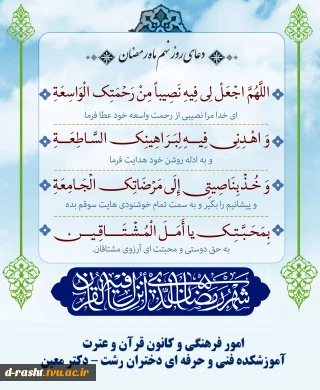 دعای روز نهم ماه رمضان
اللَّهُمَّ اجْعَلْ لِی فِیهِ نَصِیباً مِنْ رَحْمَتِکَ الْوَاسِعَةِ
ای خدا مرا نصیبی از رحمت واسعه خود عطا فرما
وَ اهْدِنِی فِیهِ لِبَرَاهِینِکَ السَّاطِعَةِ
و به ادله روشن خود هدایت فرما
وَ خُذْ بِنَاصِیَتِی إِلَی مَرْضَاتِکَ الْجَامِعَةِ
و پیشانیم را بگیر و به سمت تمام خوشنودی هایت سوقم بده
بِمَحَبَّتِکَ یَا أَمَلَ الْمُشْتَاقِینَ
به حق دوستی و محبتت ای آرزوی مشتاقان.
شهر رمضان الذی انزل فیه القرآن
امور فرهنگی و کانون قرآن و عترت
آموزشکده فنی و حرفه ای دختران رشت - دکتر معین
d-rasht.tvu.ac.ir